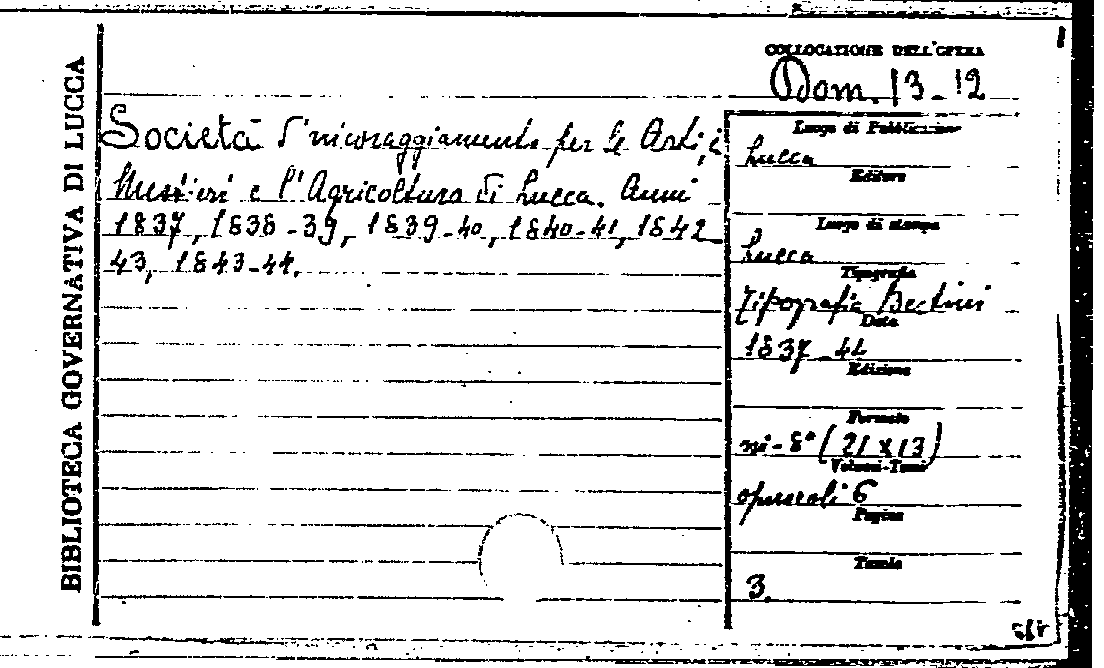 BIBLIOTECA GOVERNATIVA DI LUCCA
COLLOCAZIONE DELL'OPERA
Dom. 13-12
Società d'incoraggiamento per le Arti, i
Mestieri e l'Agricoltura di Lucca. Anni
1837, 1838-39, 1839-40, 1840-41, 1842-
43, 1843-44.
Luogo di Pubblicazione
Lucca
Editore
Luogo di stampa
Lucca
Tipografia
Tipografia Bertini
Data
1837-44
Edizione
Formato
in-8° (21 x 13)
Volumi-Tomi
opuscoli 6
Pagine
Tavole
3.